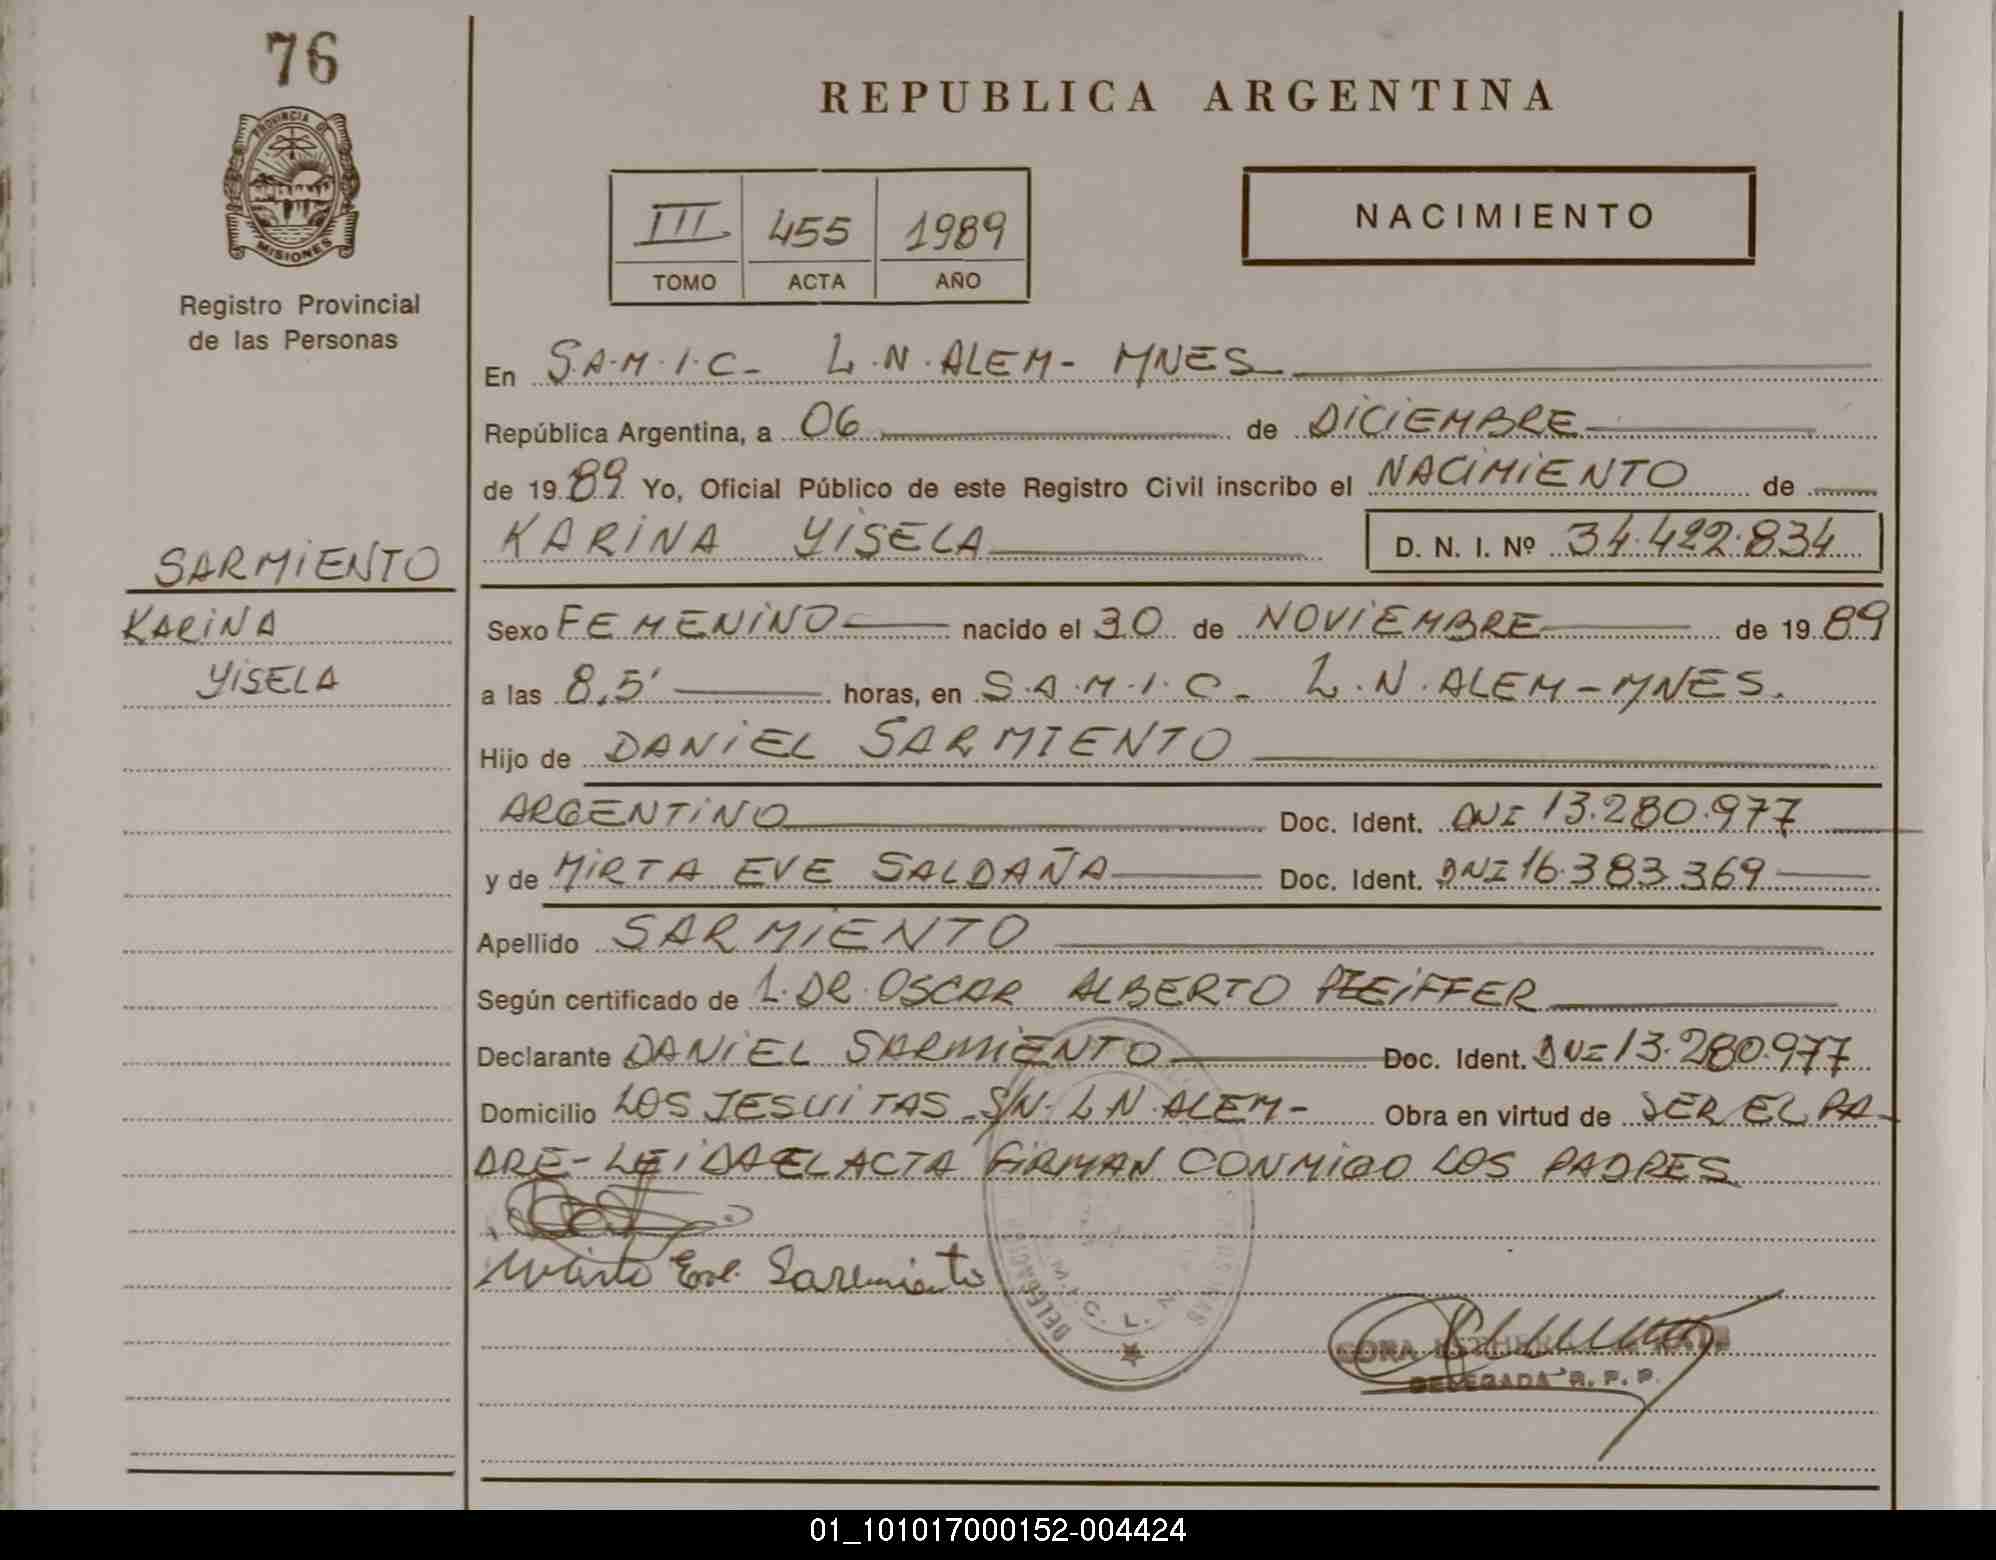 76
PROVINCIA DE
MISIONES
Registro Provincial
de las Personas
REPUBLICA ARGENTINA
III 455 1989
TOMO ACTA AÑO
NACIMIENTO
En S.A.M.I.C- L.N.ALEM- MNES
República Argentina, a 06 de DICIEMBRE
de 1989 Yo, Oficial Público de este Registro Civil inscribo el NACIMIENTO de
KARINA YISELA D. N. I. Nº 34.422.834
SARMIENTO
KARINA
YISELA
Sexo FEMENINO nacido el 30 de NOVIEMBRE de 1989
a las 8,5' horas, en S.A.M.I.C- L.N.ALEM-MNES.
Hijo de DANIEL SARMIENTO
ARGENTINO Doc. Ident. DNI 13.280.977
y de MIRTA EVE SALDAÑA Doc. Ident. DNI 16.383.369
Apellido SARMIENTO
Según certificado de 1.DR.OSCAR ALBERTO PFEIFFER
Declarante DANIEL SARMIENTO Doc. Ident. DNI 13.280.977
Domicilio LOS JESUITAS S/N- L N.ALEM- Obra en virtud de SER EL PA-
DRE- LEIDA EL ACTA FIRMAN CONMIGO LOS PADRES
Eve. Sarmiento
DELEGADA R. P. P.
01_101017000152-004424